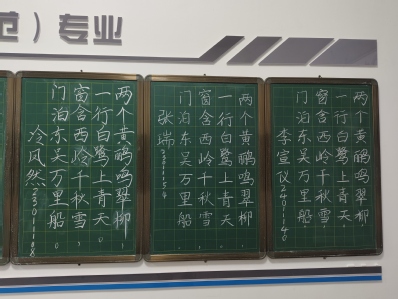 范）专业
两个黄鹂鸣翠柳，
一行白鹭上青天。
窗含西岭千秋雪，
门泊东吴万里船。
冷风然
两个黄鹂鸣翠柳，
一行白鹭上青天。
窗含西岭千秋雪，
门泊东吴万里船。
张瑞
两个黄鹂鸣翠柳，
一行白鹭上青天。
窗含西岭千秋雪，
门泊东吴万里船。
李宣仪24011140